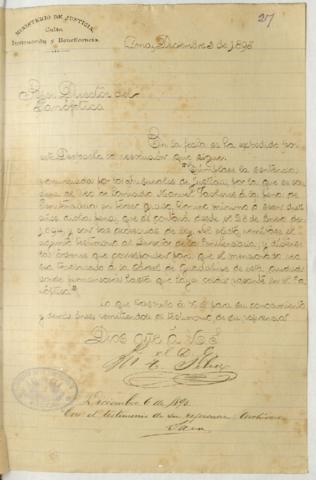 MINISTERIO DE JUSTICIA,
Culto,
Instrucción y Beneficencia.
27
Lima, Diciembre 3 de 1895
Señor Director del
Panóptico
En la fecha se ha expedido por
este Despacho la resolución que sigue:
"Cúmplase la sentencia
pronunciada por los Tribunales de Justicia, por la que se con-
dena al reo Manuel á la pena de
Penitenciaría en tercer grado, término mínimo ó sean diez
años de dicha pena, que se contará desde el 26 de Enero de
1894, y con las accesorias de ley. Al efecto remítase el
adjunto testimonio al Director de la Penitenciaría, y
órdenes que correspondan para que el mencionado reo
sea á la cárcel de Guadalupe de esta ciudad
donde permanecerá hasta que haya celda vacante en el Pa-
nóptico."
Lo que trascribo á US. para su conocimiento
y demás fines, remitiéndole el testimonio de su referencia.
Dios gue. á US.
Diciembre 6 de 1895.
Con el testimonio de su referencia, archívese